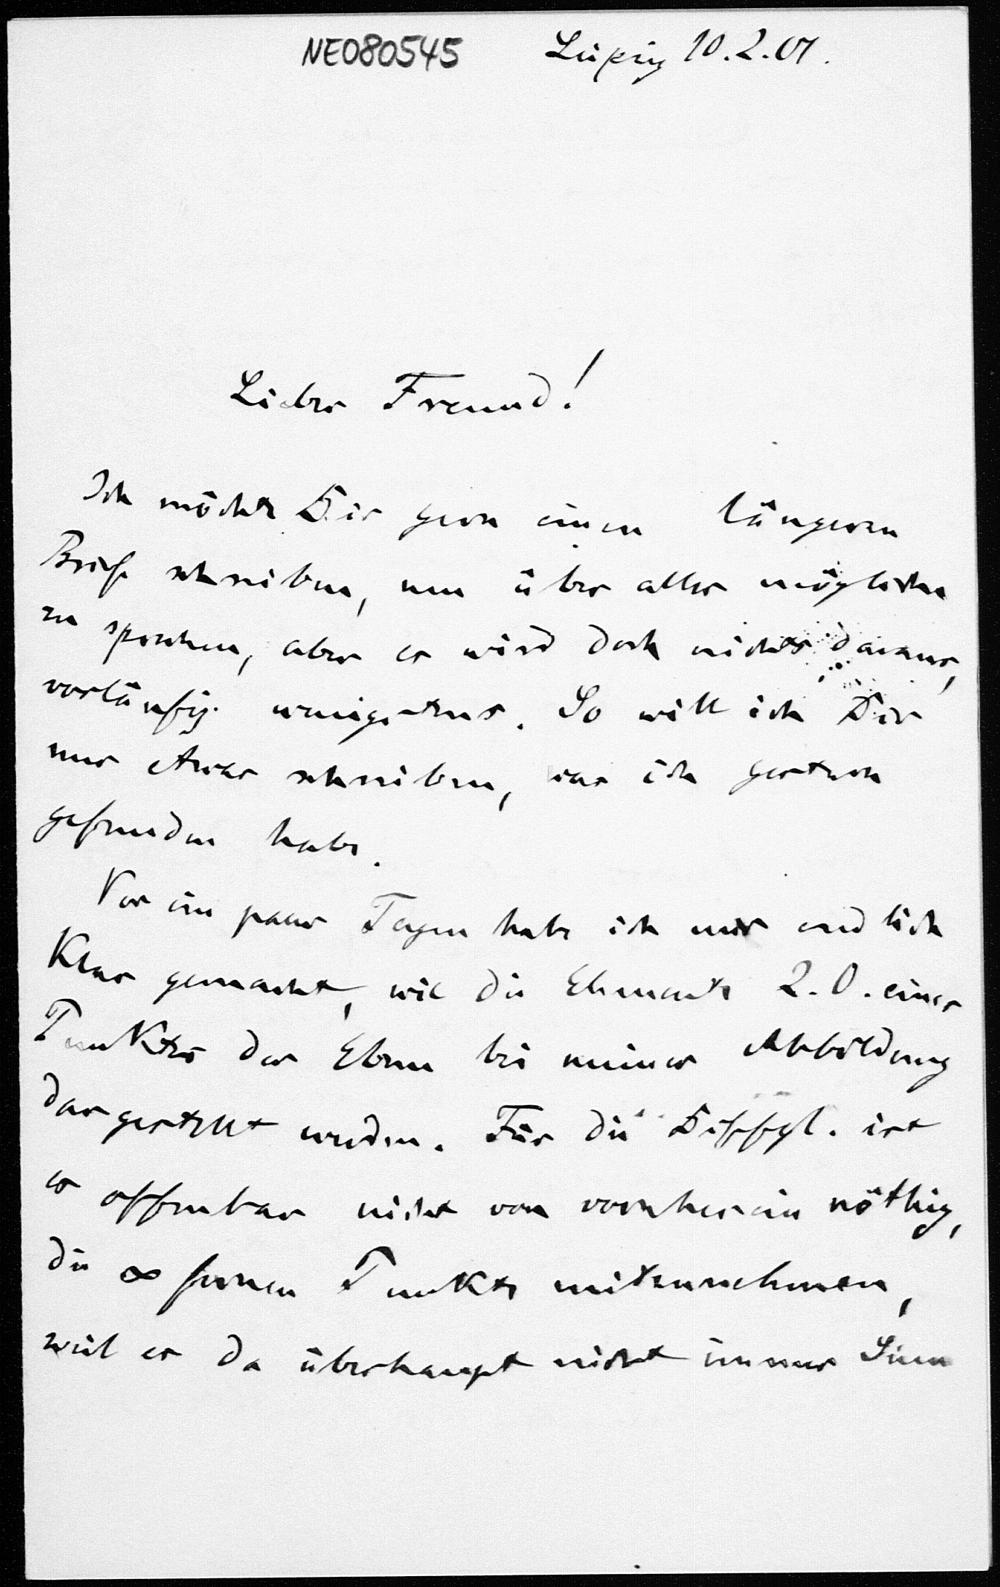 NE080545 Leipzig 10.2.07.
Lieber Freund!
Ich möchte Dir gern einen längeren
Brief schreiben, um über alles mögliche
zu sprechen, aber es wird doch nichts daraus,
vorläufig wenigstens. So will ich Dir
nur etwas schreiben, was ich gestern
gefunden habe.
Vor ein paar Tagen habe ich mir endlich
Klar gemacht, wie die Elemente 2.O. eines
Punktes der Ebene bei meiner Abbildung
dargestellt werden. Für die Diffgl. ist
es offenbar nicht von vornherein nöthig,
die ∞ fernen Punkte mitzunehmen,
weil es da überhaupt nicht immer Sinn